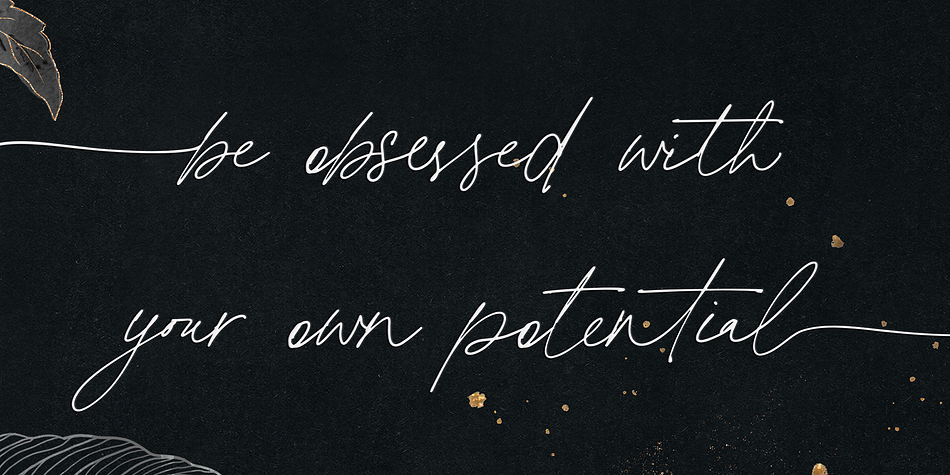 be obsessed with
your own potential